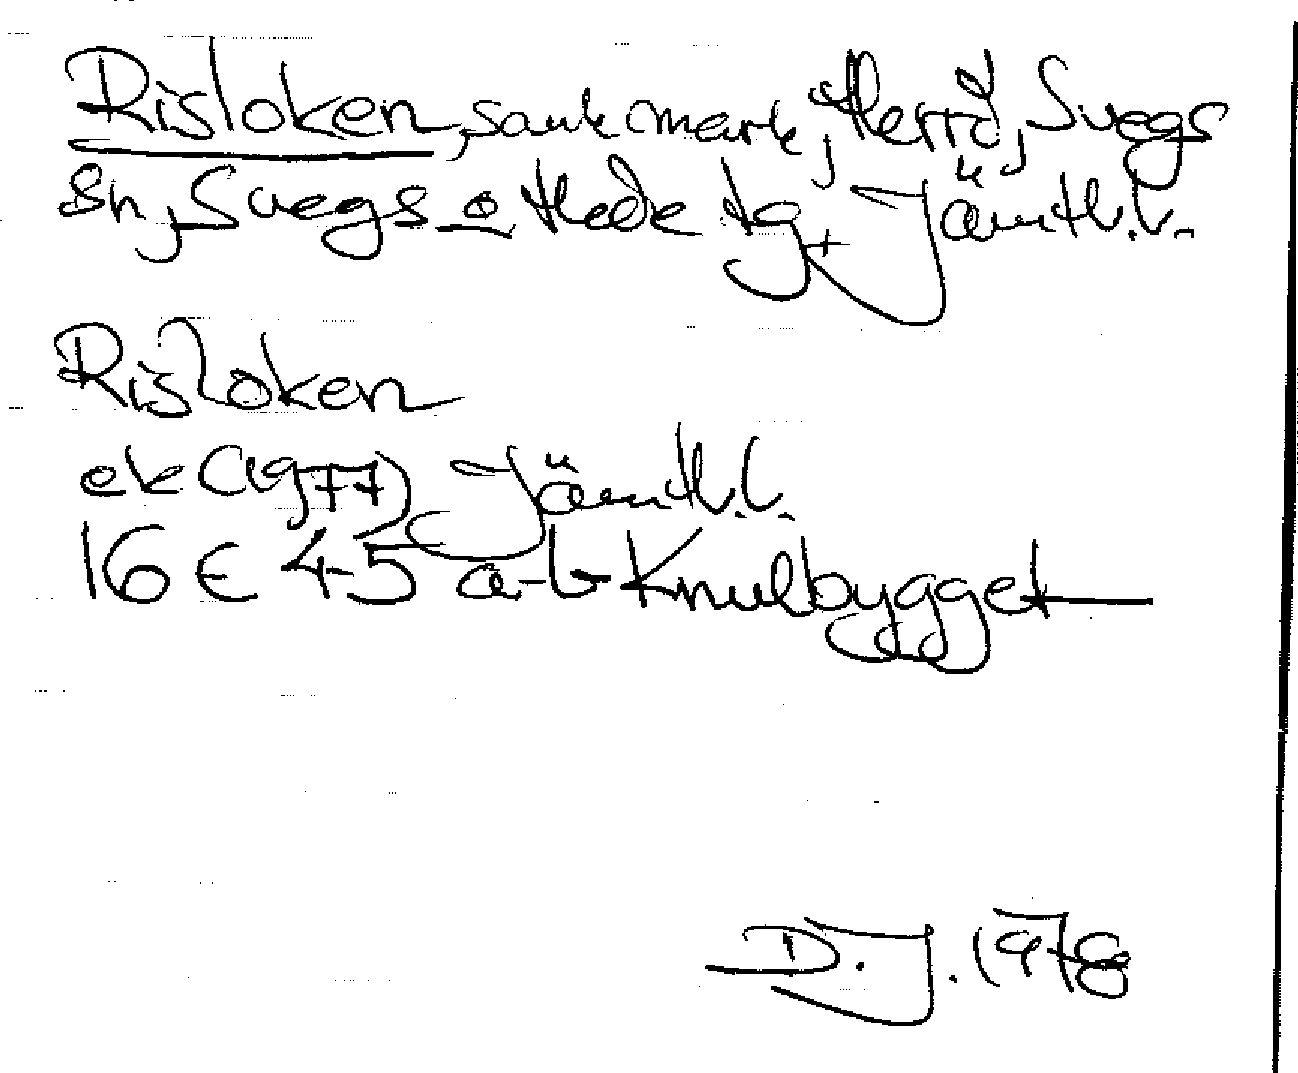 Risloken, sank mark, Herrö, Svegs
sn, Svegs o Hede tg, Jämtl.l.
Risloken
ek (1977) Jämtl.l.
16 E 4-5 a-b Knulbygget
D.J. 1978